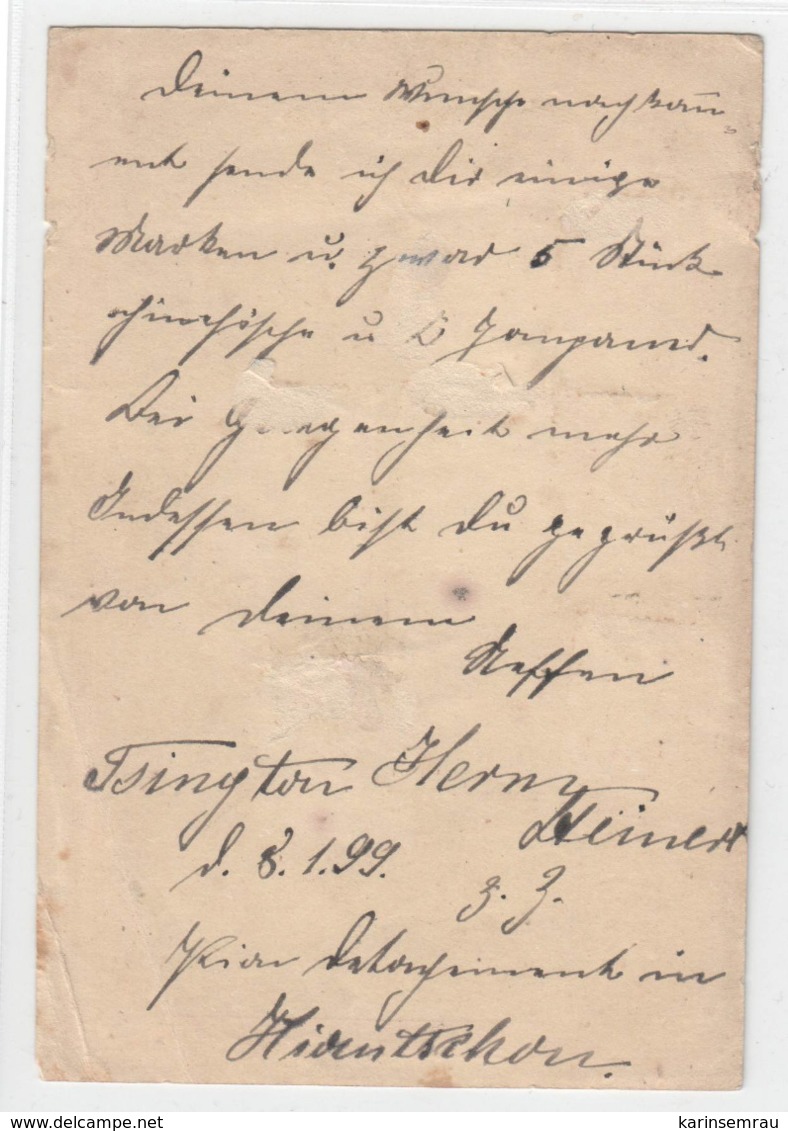 Deinem Wunsche nachkom̄-
end sende ich Dir einige
Marken u. zwar 5 Stück
chinesische u 6 Jonganend.
Bei Gelegenheit mehr
Indessen bist Du gegrüßt
von Deinem
Neffen
Tsingtau Herm
Steinert
d. 8. 1. 99.
z. Z.
Detachement in
Kiautschou.
delcampe.net
karinsemrau